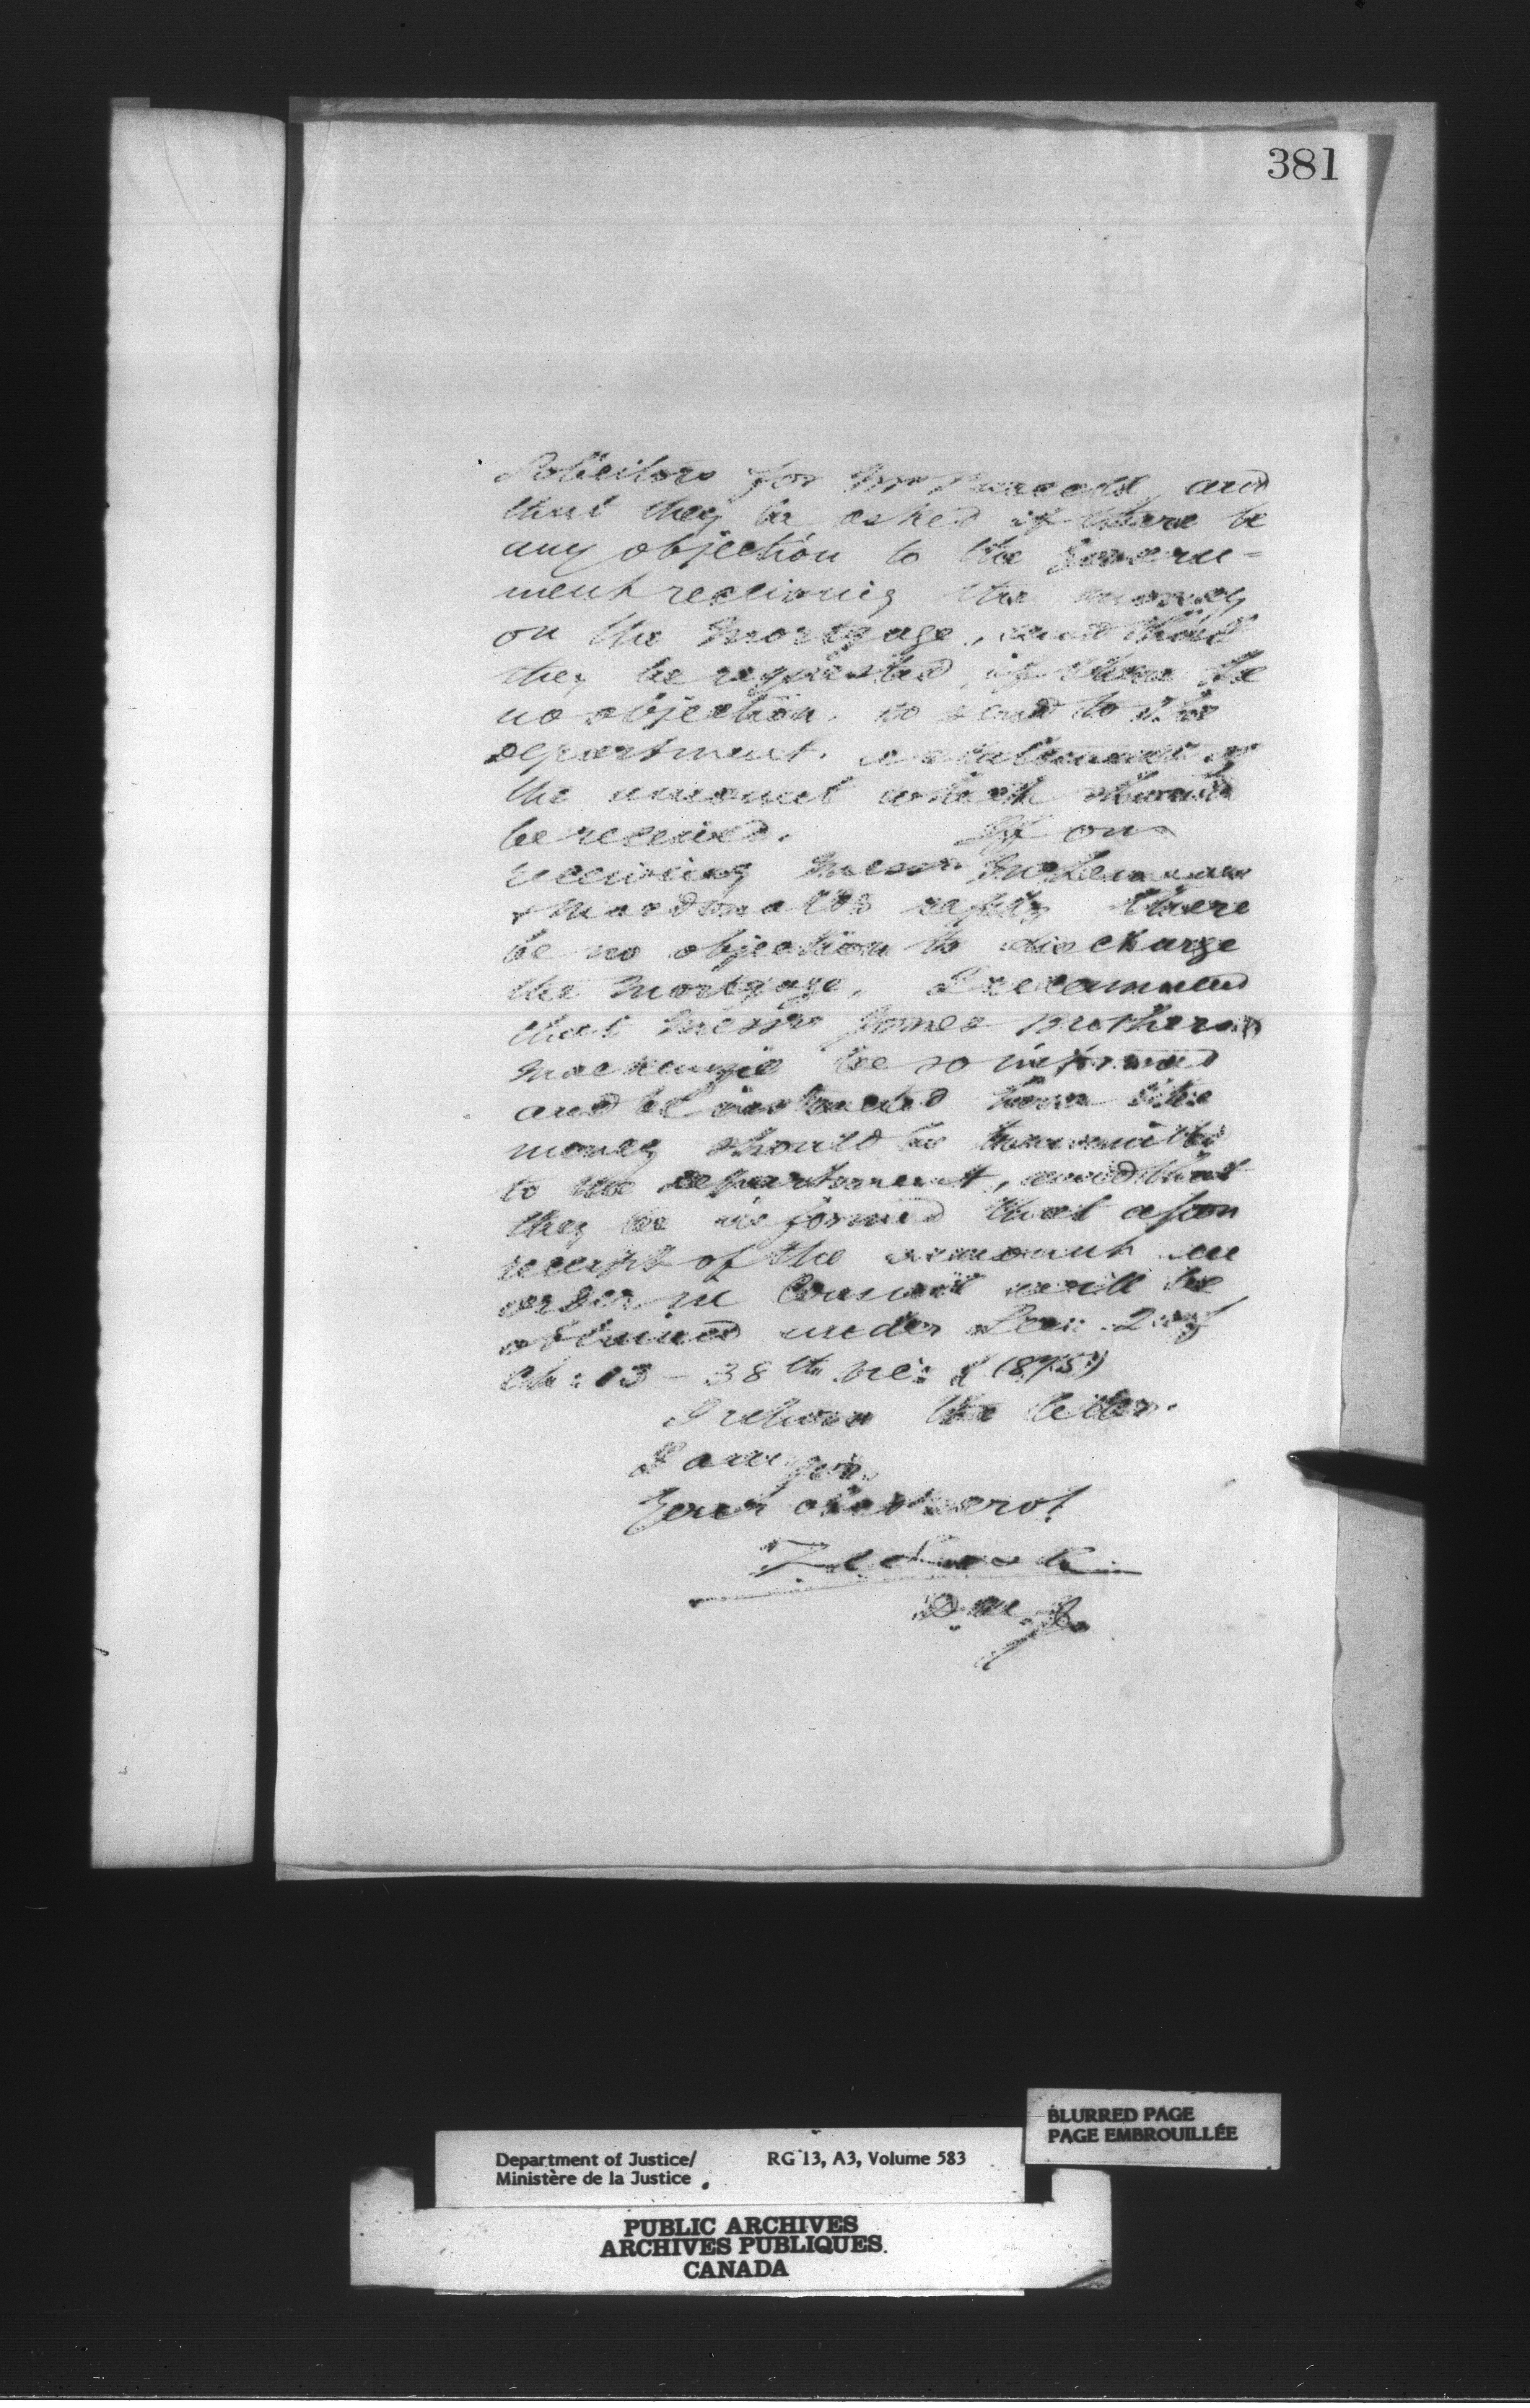 381
Solicitors for Mr Purcell, and
that they be asked if there be
any objection to the Govern=
ment receiving the money
on the Mortgage, and that
they be requested, if there be
no objection, to send to the
department, a statement of
the amount which should
be received. If on
receiving Messrs
& Macdonalds reply there
be no objection to discharge
the Mortgage, I recommend
that Messrs Jones Brothers &
Mackenzie be so informed
and be instructed how the
money should be transmitted
to the department, and that
they be informed that upon
receipt of the amount an
order in Council will be
obtained under Sec: 2 of
Ch: 13 - 38th Vic: (1875)
I return the letter.
I am Sir,
Your obdt servt
D. M. J.
BLURRED PAGE
PAGE EMBROUILLÉE
Department of Justice/ RG 13, A3, Volume 583
Ministère de la Justice
PUBLIC ARCHIVES
ARCHIVES PUBLIQUES
CANADA